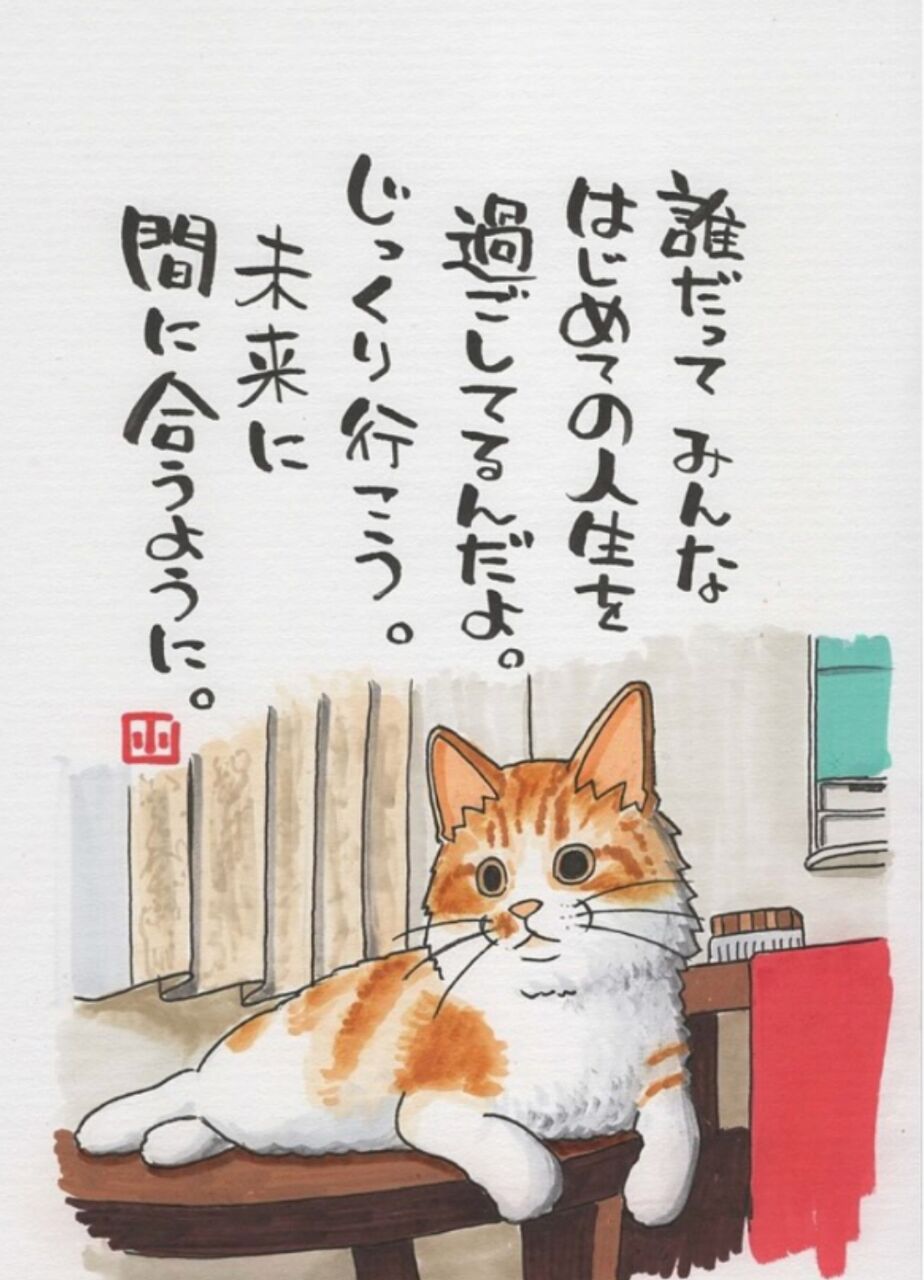 誰だって みんな
はじめての人生を
過ごしてるんだよ。
じっくり行こう。
未来に
間に合うように。